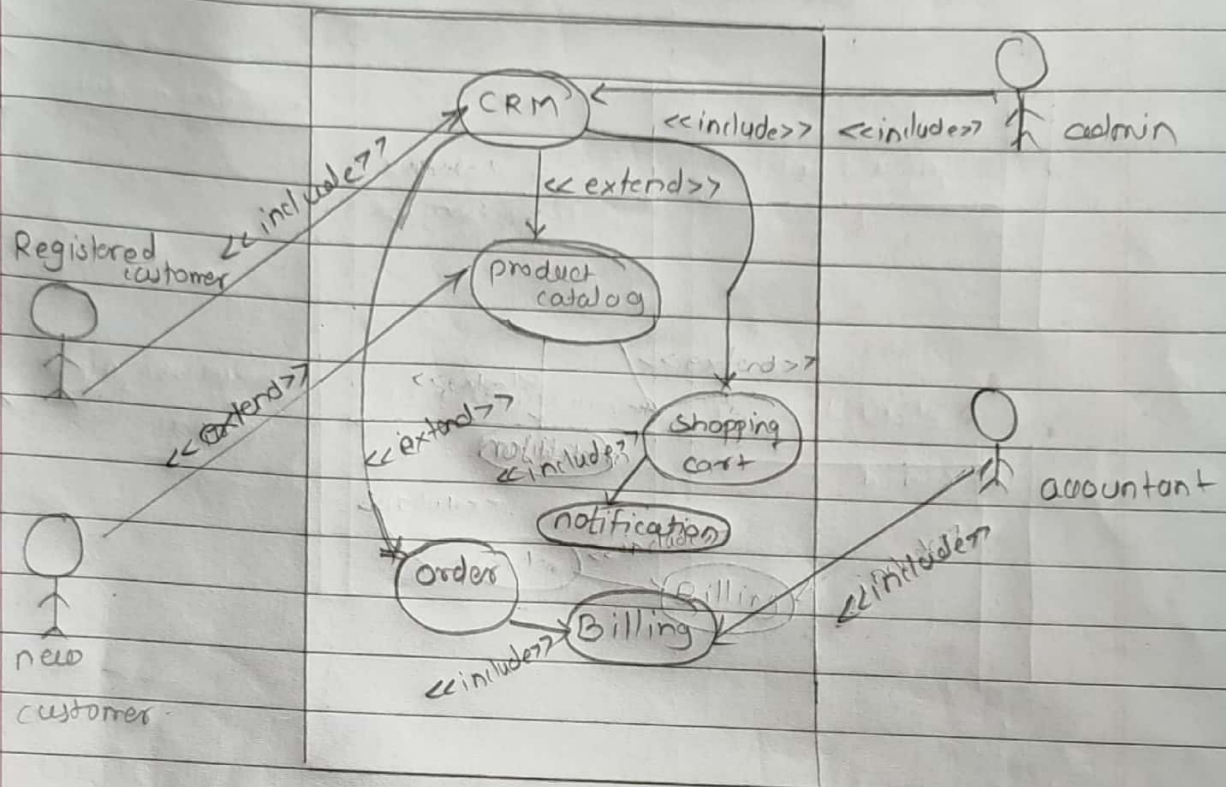 CRM
<<include>>
<<include>>
admin
<<include>>
<<extend>>
Registered
customer
product
catalog
<<extend>>
<<extend>>
shopping
cart
<<include>>
accountant
notification
<<include>>
order
Billing
Billing
<<include>>
new
customer